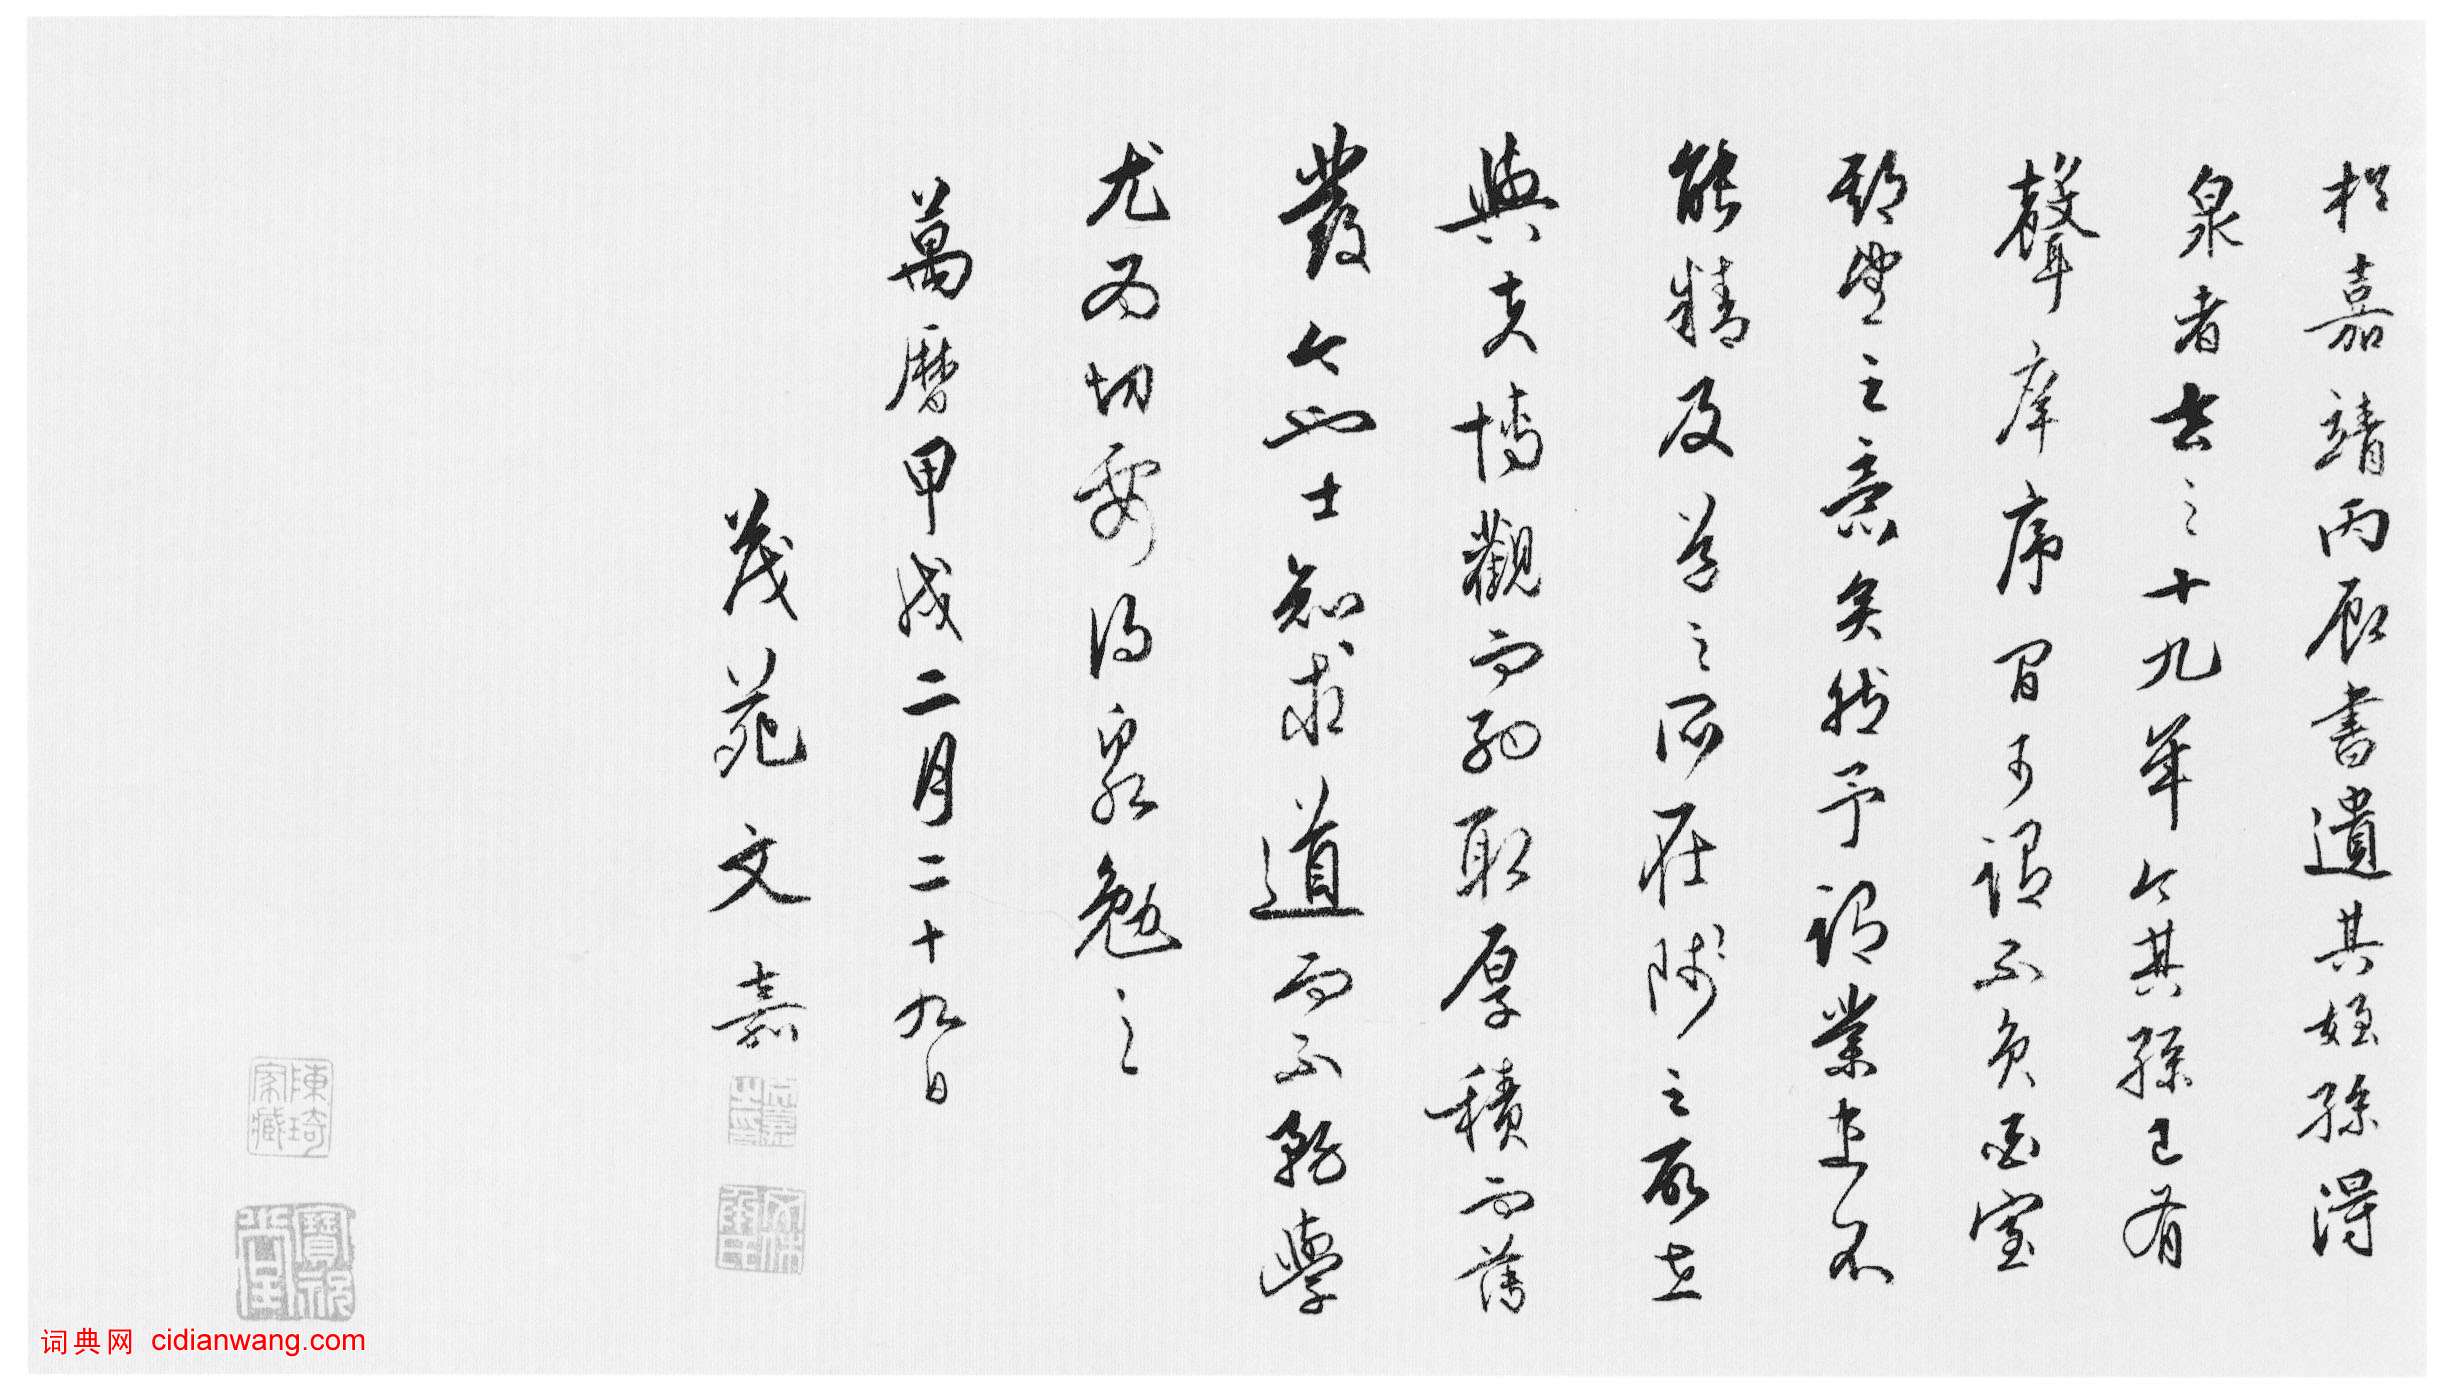 於嘉靖丙辰書遺其姪孫得
泉者去之十九年今其孫已有
聲庠序間可謂不負函室
期望之意矣然予謂業患不
能精及荒之所在隙之所在
與夫博觀而約取厚積而薄
發今之士知求道而不務學
尤為切要得泉勉之
萬曆甲戌二月二十九日
茂苑文嘉
陳琦家藏
寶
堂
词典网 cidianwang.com